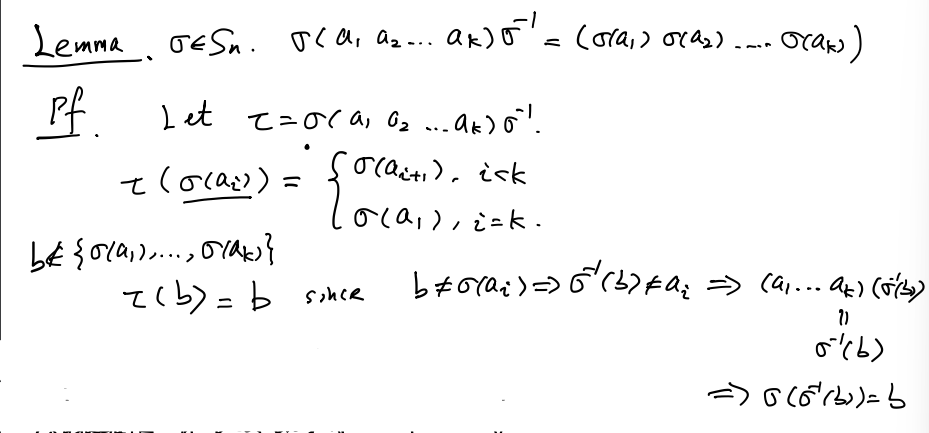 Lemma. σ∈Sn. σ(a₁ a₂ ... aₖ)σ⁻¹ = (σ(a₁) σ(a₂) ..... σ(aₖ))
Pf. Let τ = σ(a₁ a₂ ... aₖ)σ⁻¹.
τ(σ(aᵢ)) = { σ(aᵢ₊₁), i<k
σ(a₁), i=k.
b∉{σ(a₁),..., σ(aₖ)}
τ(b) = b since b≠σ(aᵢ) ⇒ σ⁻¹(b)≠aᵢ ⇒ (a₁... aₖ)(σ⁻¹(b))
||
σ⁻¹(b)
⇒ σ(σ⁻¹(b))=b